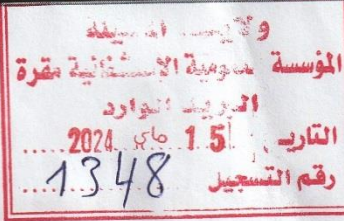 ولاية المسيلة
المؤسسة العمومية الإستشفائية مقرة
البريد الوارد
التاريخ 15 ماي 2024
رقم التسجيل 1348